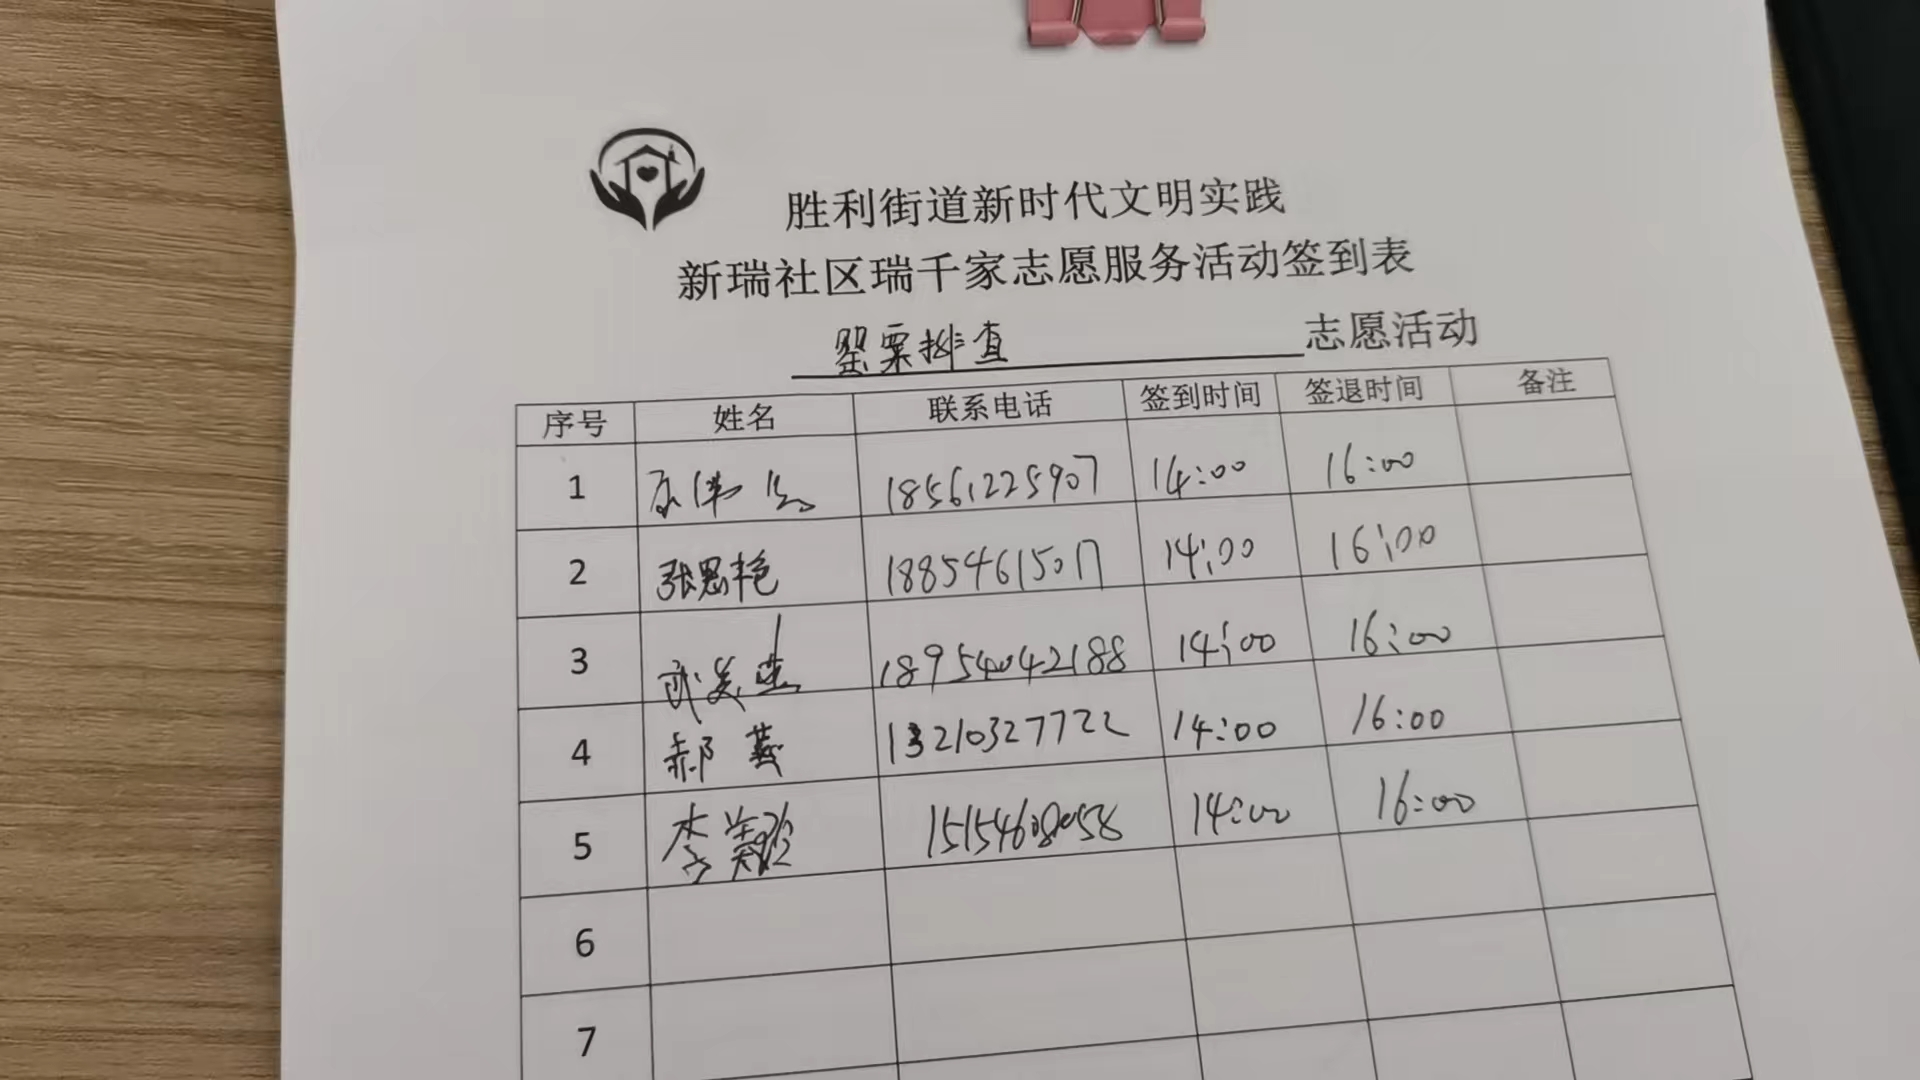 胜利街道新时代文明实践
新瑞社区瑞千家志愿服务活动签到表
罂粟排查 志愿活动
序号 姓名 联系电话 签到时间 签退时间 备注
1 18561225907 14:00 16:00
2 张思艳 18854615017 14:00 16:00
3 武美莲 18954042188 14:00 16:00
4 郝燕 13210327722 14:00 16:00
5 李美玲 15154608058 14:00 16:00
6
7